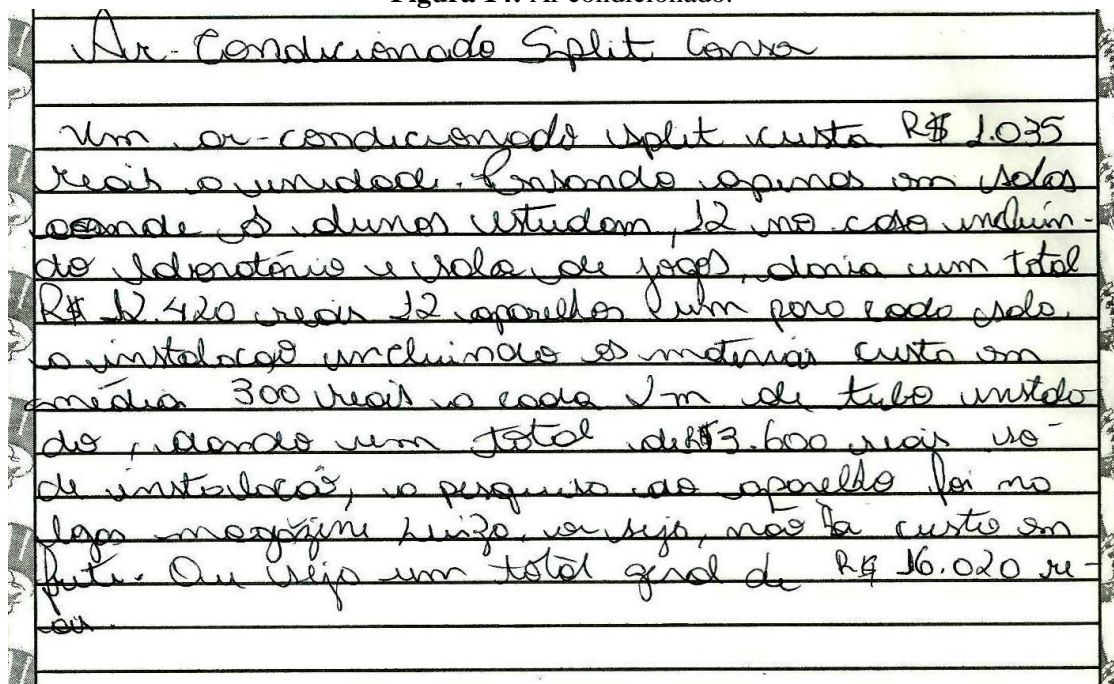 Figura 14. Ar condicionado.
Ar-Condicionado Split Consu
Um ar-condicionado split custa R$ 1.035
reais a unidade. Pensando apenas em salas
aonde os alunos estudam, 12 no caso incluin-
do laboratório e sala de jogos, daria um total
R$ 12.420 reais 12 aparelhos (um para cada sala.
a instalação incluindo os materiais custa em
média 300 reais a cada 1m de tubo instala-
do, dando um total de R$3.600 reais só
de instalação, a pesquisa do aparelho foi na
lojas magazine Luiza, ou seja, não ha custo em
frete. Ou seja um total geral de R$ 16.020 re-
ais.